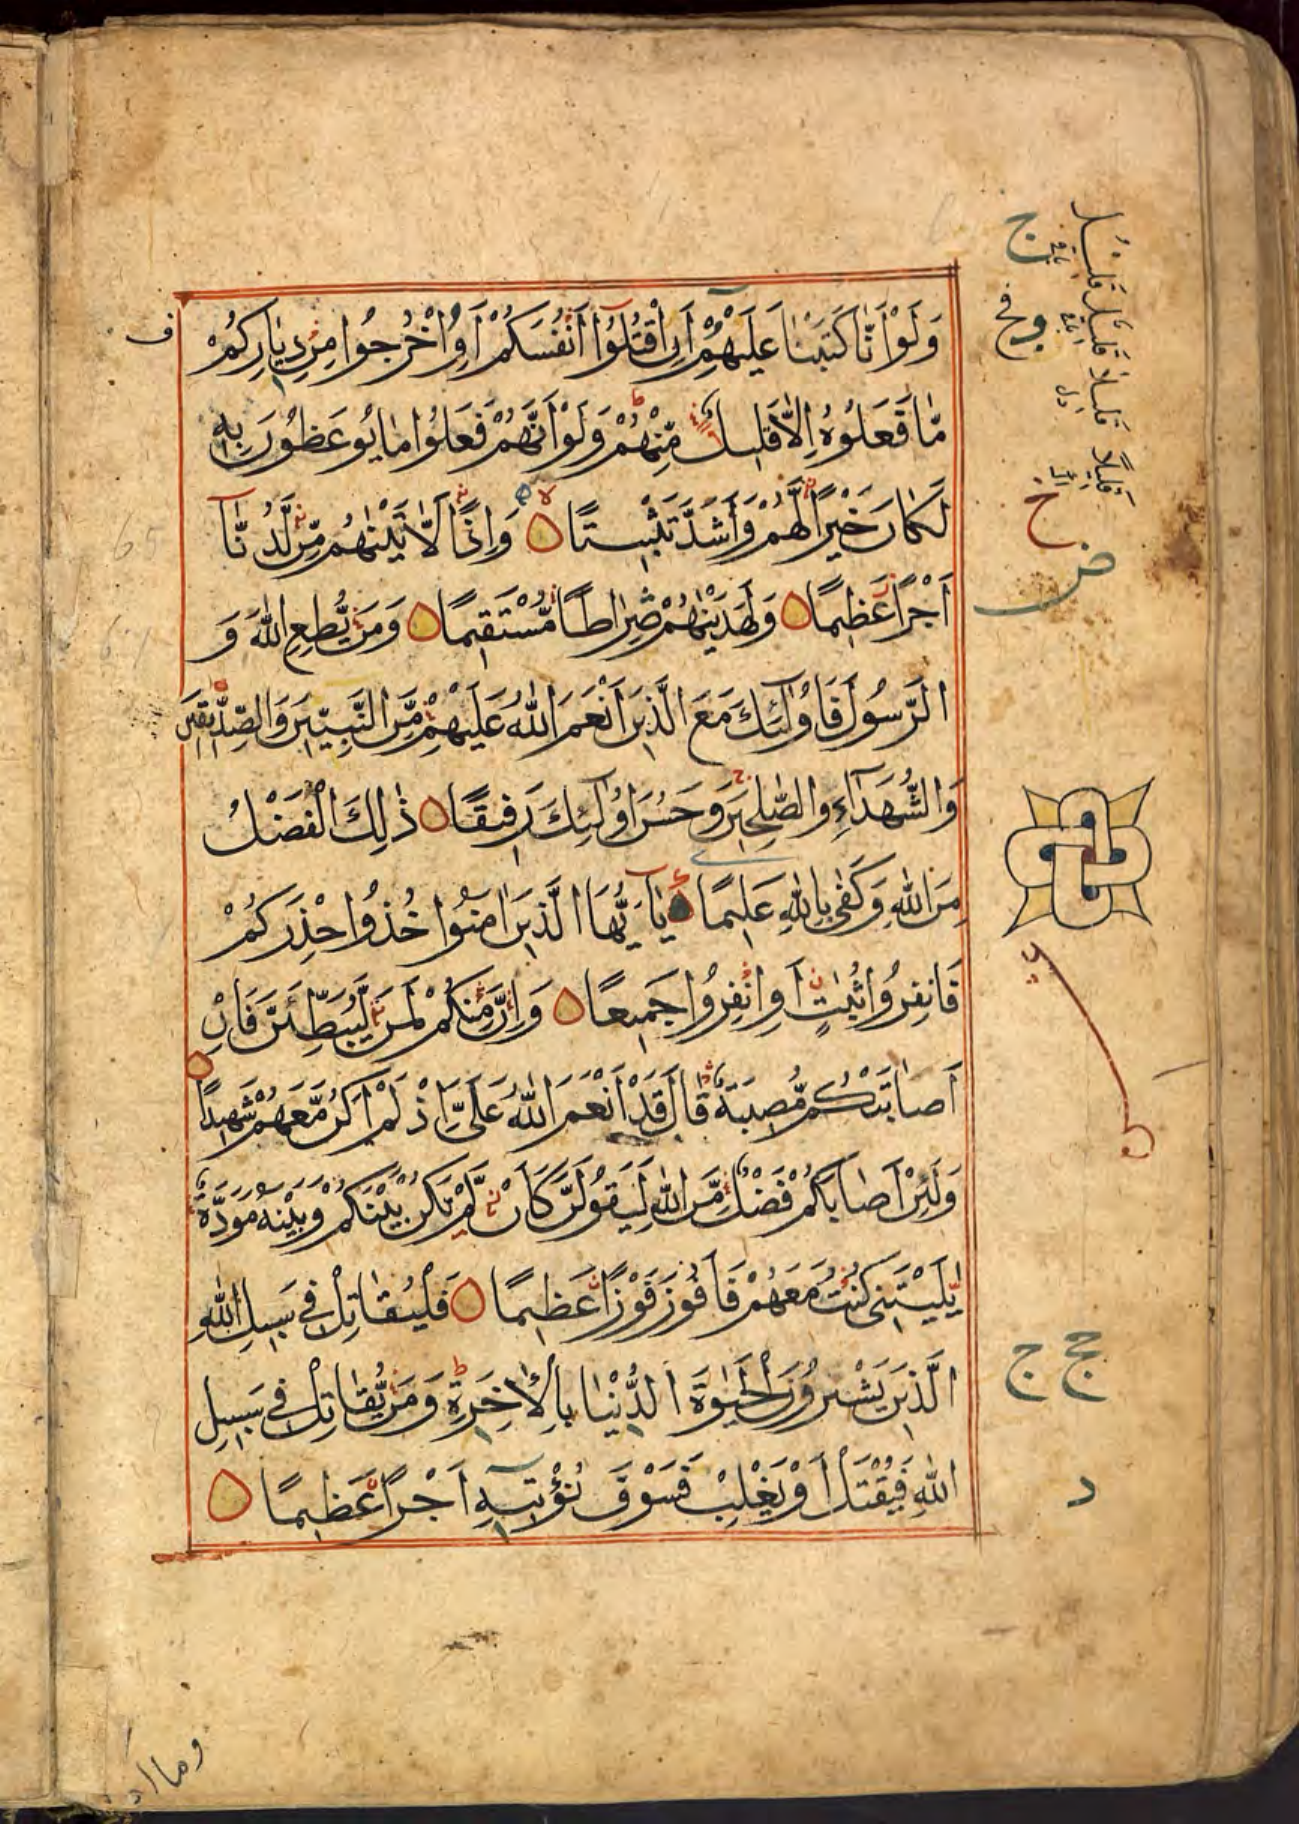 وَلَوْ اَنَّا كَتَبْنَا عَلَيْهِمْ اَنِ اقْتُلُوٓا اَنْفُسَكُمْ اَوِ اخْرُجُوا مِنْ دِيَارِكُمْ
مَّا فَعَلُوْهُ اِلَّا قَلِيلٌ مِّنْهُمْ وَلَوْ اَنَّهُمْ فَعَلُوْا مَا يُوعَظُوْنَ بِهٖ
لَكَانَ خَيْرًا لَّهُمْ وَاَشَدَّ تَثْبِيتًا وَاِذًا لَّاٰتَيْنٰهُمْ مِّنْ لَّدُنَّا
اَجْرًا عَظِيمًا وَلَهَدَيْنٰهُمْ صِرَاطًا مُّسْتَقِيمًا وَمَنْ يُّطِعِ اللّٰهَ وَ
الرَّسُولَ فَاُولٰٓئِكَ مَعَ الَّذِينَ اَنْعَمَ اللّٰهُ عَلَيْهِمْ مِّنَ النَّبِيّٖنَ وَالصِّدِّيقِينَ
وَالشُّهَدَآءِ وَالصّٰلِحِينَ وَحَسُنَ اُولٰٓئِكَ رَفِيقًا ذٰلِكَ الْفَضْلُ
مِنَ اللّٰهِ وَكَفٰى بِاللّٰهِ عَلِيمًا يٰٓاَيُّهَا الَّذِينَ اٰمَنُوا خُذُوا حِذْرَكُمْ
فَانْفِرُوا ثُبَاتٍ اَوِ انْفِرُوا جَمِيعًا وَاِنَّ مِنْكُمْ لَمَنْ لَّيُبَطِّئَنَّ فَاِنْ
اَصَابَتْكُمْ مُّصِيبَةٌ قَالَ قَدْ اَنْعَمَ اللّٰهُ عَلَىَّ اِذْ لَمْ اَكُنْ مَّعَهُمْ شَهِيدًا
وَلَئِنْ اَصَابَكُمْ فَضْلٌ مِّنَ اللّٰهِ لَيَقُولَنَّ كَاَنْ لَّمْ تَكُنْ بَيْنَكُمْ وَبَيْنَهٗ مَوَدَّةٌ
يّٰلَيْتَنِى كُنْتُ مَعَهُمْ فَاَفُوزَ فَوْزًا عَظِيمًا فَلْيُقَاتِلْ فِى سَبِيلِ اللّٰهِ
الَّذِينَ يَشْرُونَ الْحَيٰوةَ الدُّنْيَا بِالْاٰخِرَةِ وَمَنْ يُّقَاتِلْ فِى سَبِيلِ
اللّٰهِ فَيُقْتَلْ اَوْ يَغْلِبْ فَسَوْفَ نُؤْتِيهِ اَجْرًا عَظِيمًا
ف
65
ج
خ
ض
ج ج
د